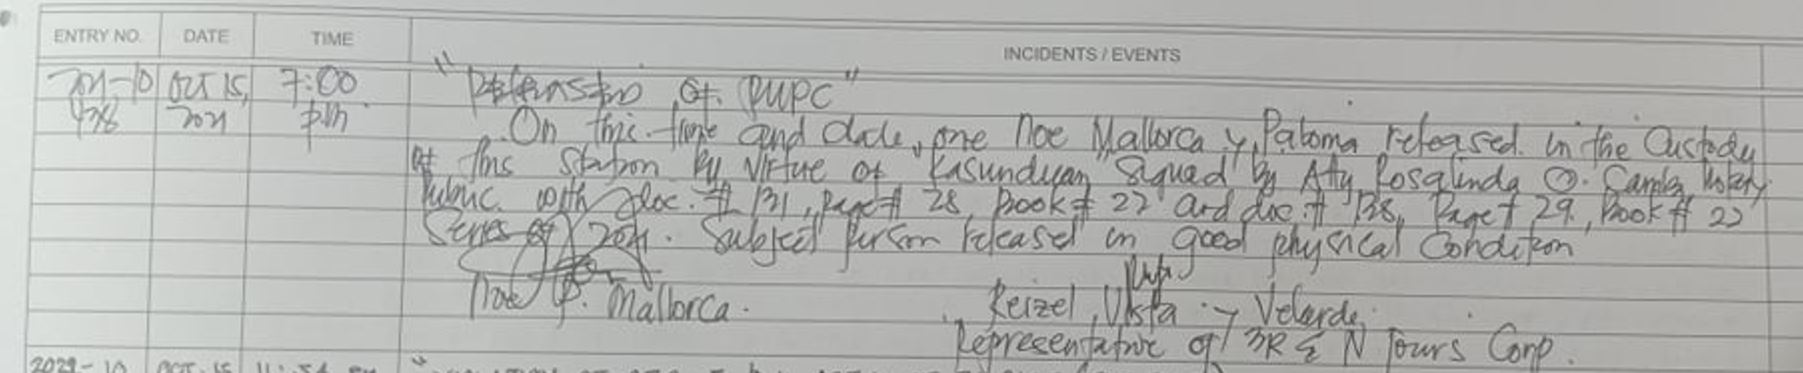 ENTRY NO. DATE TIME INCIDENTS / EVENTS
Oct 15, 7:00 " of PUPC"
2021 p.m. On this time and date, one Noe Mallorca y Paloma released in the Custody
of this Station by Virtue of Kasunduan Signed by Atty Rosalinda O. Notary
Public with doc. # 131, page # 28, Book # 22 and doc. # 138, Page # 29, Book # 22
Series of 2021. Subject person released in good physical Condition
Noe P. Mallorca. Reizel Vista y Velarde
Representative of 3R & N Tours Corp.